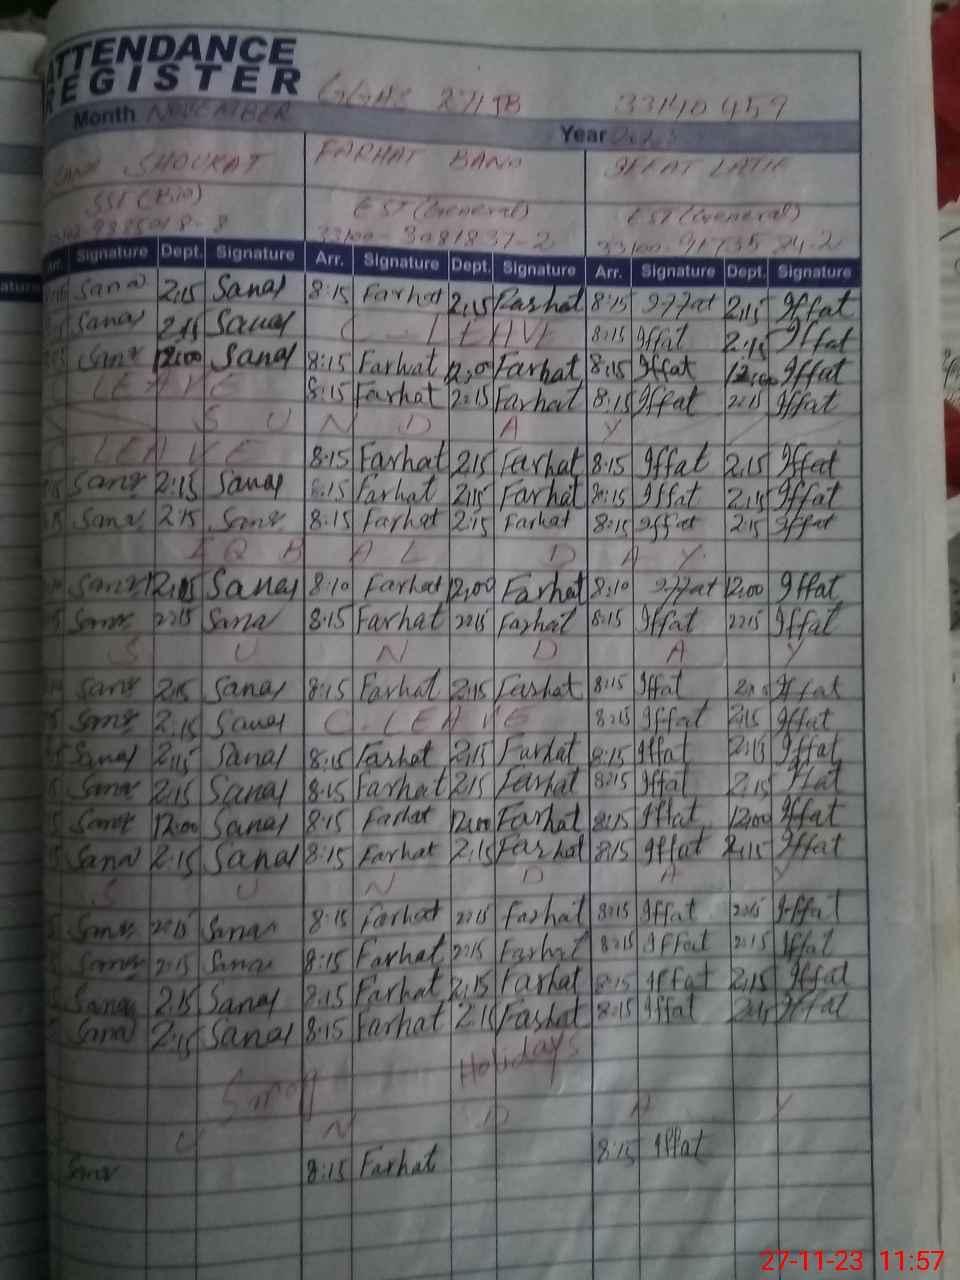 ATTENDANCE
REGISTER
27/JB 33140459
Month NOVEMBER Year 2023
SHOUKAT FARHAT BANO IFFAT LATIF
SST (Bio) EST (General) EST (General)
33100-3081837-2
Arr. Signature Dept. Signature Arr. Signature Dept. Signature Arr. Signature Dept. Signature
Sana 2:15 Sana 8:15 Farhat 2:15 Farhat 8:15 Iffat 2:15 Iffat
Sana 2:15 Sana C-LEAVE 8:15 Iffat 2:15 Iffat
Sana 12:00 Sana 8:15 Farhat 12:00 Farhat 8:15 Iffat 12:00 Iffat
LEAVE 8:15 Farhat 2:15 Farhat 8:15 Iffat 2:15 Iffat
S U N D A Y
LEAVE 8:15 Farhat 2:15 Farhat 8:15 Iffat 2:15 Iffat
Sana 2:15 Sana 8:15 Farhat 2:15 Farhat 8:15 Iffat 2:15 Iffat
Sana 2:15 Sana 8:15 Farhat 2:15 Farhat 8:15 Iffat 2:15 Iffat
I Q B A L D A Y
Sana 12:05 Sana 8:10 Farhat 12:00 Farhat 8:10 Iffat 12:00 Iffat
Sana 2:15 Sana 8:15 Farhat 2:15 Farhat 8:15 Iffat 2:15 Iffat
S U N D A Y
Sana 2:15 Sana 8:15 Farhat 2:15 Farhat 8:15 Iffat Iffat
Sana 2:15 Sana C-LEAVE 8:15 Iffat 2:15 Iffat
Sana 2:15 Sana 8:15 Farhat 2:15 Farhat 8:15 Iffat 2:15 Iffat
Sana 2:15 Sana 8:15 Farhat 2:15 Farhat 8:15 Iffat 2:15 Iffat
Sana 12:00 Sana 8:15 Farhat 12:00 Farhat 8:15 Iffat 12:00 Iffat
Sana 2:15 Sana 8:15 Farhat 2:15 Farhat 8:15 Iffat 2:15 Iffat
S U N D A Y
Sana 2:15 Sana 8:15 Farhat 2:15 Farhat 8:15 Iffat 2:15 Iffat
Sana 2:15 Sana 8:15 Farhat 2:15 Farhat 8:15 Iffat 2:15 Iffat
Sana 2:15 Sana 8:15 Farhat 2:15 Farhat 8:15 Iffat 2:15 Iffat
Sana 2:15 Sana 8:15 Farhat 2:15 Farhat 8:15 Iffat 2:15 Iffat
Smog Holidays
U N D A Y
Sana 8:15 Farhat 8:15 Iffat
27-11-23 11:57